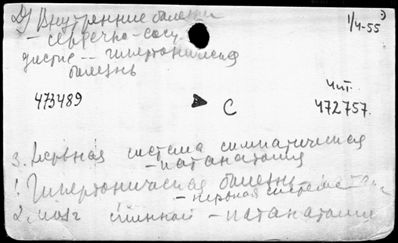 Д) Внутренние болезни
1/4-55
– сердечно-сосу
дистые -- гипертоническая
болезнь
чит.
473489
С
472757.
3. нервная система симпатическая
– патанатомия
1. Гипертоническая болезнь
– нервная система
2. мозг спинной – патанатомия